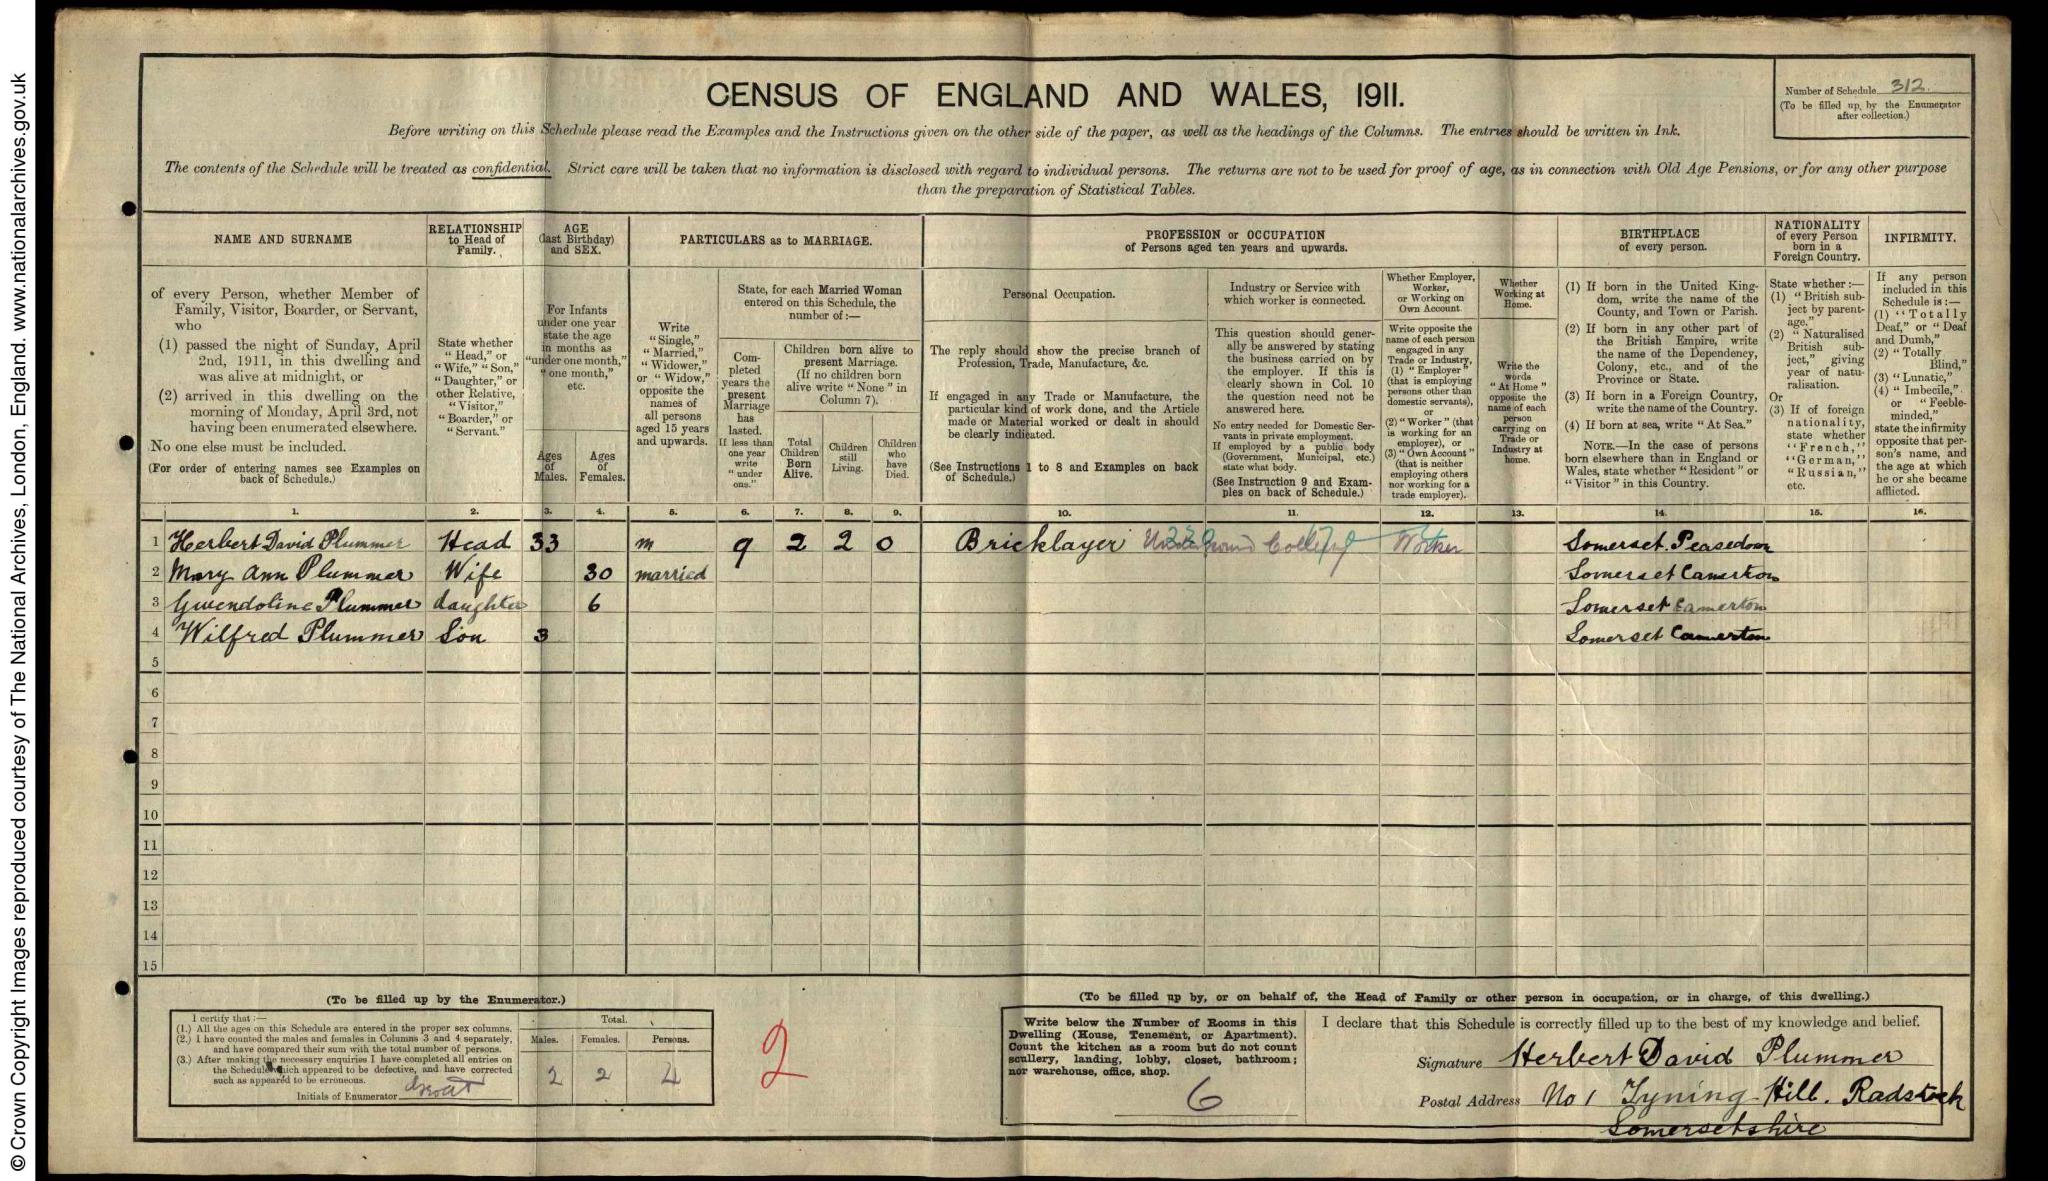 CENSUS OF ENGLAND AND WALES, 1911.
Number of Schedule 312.
(To be filled up by the Enumerator
after collection.)
Before writing on this Schedule please read the Examples and the Instructions given on the other side of the paper, as well as the headings of the Columns. The entries should be written in Ink.
The contents of the Schedule will be treated as confidential. Strict care will be taken that no information is disclosed with regard to individual persons. The returns are not to be used for proof of age, as in connection with Old Age Pensions, or for any other purpose
than the preparation of Statistical Tables.
NAME AND SURNAME
of every Person, whether Member of
Family, Visitor, Boarder, or Servant,
who
(1) passed the night of Sunday, April
2nd, 1911, in this dwelling and
was alive at midnight, or
(2) arrived in this dwelling on the
morning of Monday, April 3rd, not
having been enumerated elsewhere.
No one else must be included.
(For order of entering names see Examples on
back of Schedule.)
RELATIONSHIP
to Head of
Family.
State whether
"Head," or
"Wife," "Son,"
"Daughter," or
other Relative,
"Visitor,"
"Boarder," or
"Servant."
AGE
(last Birthday)
and SEX.
For Infants
under one year
state the age
in months as
"under one month,"
"one month,"
etc.
Ages
of
Males.
Ages
of
Females.
PARTICULARS as to MARRIAGE.
Write
"Single,"
"Married,"
"Widower,"
or "Widow,"
opposite the
names of
all persons
aged 15 years
and upwards.
State, for each Married Woman
entered on this Schedule, the
number of:—
Com-
pleted
years the
present
Marriage
has
lasted.
If less than
one year
write
"under
one."
Children born alive to
present Marriage.
(If no children born
alive write "None" in
Column 7).
Total
Children
Born
Alive.
Children
still
Living.
Children
who
have
Died.
PROFESSION or OCCUPATION
of Persons aged ten years and upwards.
Personal Occupation.
The reply should show the precise branch of
Profession, Trade, Manufacture, &c.
If engaged in any Trade or Manufacture, the
particular kind of work done, and the Article
made or Material worked or dealt in should
be clearly indicated.
(See Instructions 1 to 8 and Examples on back
of Schedule.)
Industry or Service with
which worker is connected.
This question should gener-
ally be answered by stating
the business carried on by
the employer. If this is
clearly shown in Col. 10
the question need not be
answered here.
No entry needed for Domestic Ser-
vants in private employment.
If employed by a public body
(Government, Municipal, etc.)
state what body.
(See Instruction 9 and Exam-
ples on back of Schedule.)
Whether Employer,
Worker,
or Working on
Own Account.
Write opposite the
name of each person
engaged in any
Trade or Industry,
(1) "Employer"
(that is employing
persons other than
domestic servants),
or
(2) "Worker" (that
is working for an
employer), or
(3) "Own Account"
(that is neither
employing others
nor working for a
trade employer).
Whether
Working at
Home.
Write the
words
"At Home"
opposite the
name of each
person
carrying on
Trade or
Industry at
home.
BIRTHPLACE
of every person.
(1) If born in the United King-
dom, write the name of the
County, and Town or Parish.
(2) If born in any other part of
the British Empire, write
the name of the Dependency,
Colony, etc., and of the
Province or State.
(3) If born in a Foreign Country,
write the name of the Country.
(4) If born at sea, write "At Sea."
NOTE.—In the case of persons
born elsewhere than in England or
Wales, state whether "Resident" or
"Visitor" in this Country.
NATIONALITY
of every Person
born in a
Foreign Country.
State whether:—
(1) "British sub-
ject by parent-
age,"
(2) "Naturalised
British sub-
ject," giving
year of natu-
ralisation.
Or
(3) If of foreign
nationality,
state whether
"French,"
"German,"
"Russian,"
etc.
INFIRMITY.
If any person
included in this
Schedule is:—
(1) "Totally
Deaf," or "Deaf
and Dumb,"
(2) "Totally
Blind,"
(3) "Lunatic,"
(4) "Imbecile,"
or "Feeble-
minded,"
state the infirmity
opposite that per-
son's name, and
the age at which
he or she became
afflicted.
1. 2. 3. 4. 5. 6. 7. 8. 9. 10. 11. 12. 13. 14. 15. 16.
1 Herbert David Plummer Head 33 m 9 2 2 0 Bricklayer Worker Somerset Peasedown
2 Mary Ann Plummer Wife 30 married Somerset Camerton
3 Gwendoline Plummer daughter 6 Somerset Camerton
4 Wilfred Plummer Son 3 Somerset Camerton
5
6
7
8
9
10
11
12
13
14
15
(To be filled up by the Enumerator.)
I certify that:—
(1.) All the ages on this Schedule are entered in the proper sex columns.
(2.) I have counted the males and females in Columns 3 and 4 separately,
and have compared their sum with the total number of persons.
(3.) After making the necessary enquiries I have completed all entries on
the Schedule which appeared to be defective, and have corrected
such as appeared to be erroneous.
Initials of Enumerator
Total.
Males. Females. Persons.
2 2 4
2
(To be filled up by, or on behalf of, the Head of Family or other person in occupation, or in charge, of this dwelling.)
Write below the Number of Rooms in this
Dwelling (House, Tenement, or Apartment).
Count the kitchen as a room but do not count
scullery, landing, lobby, closet, bathroom;
nor warehouse, office, shop.
6
I declare that this Schedule is correctly filled up to the best of my knowledge and belief.
Signature Herbert David Plummer
Postal Address No 1 Tyning Hill. Radstock
Somersetshire
© Crown Copyright Images reproduced courtesy of The National Archives, London, England. www.nationalarchives.gov.uk